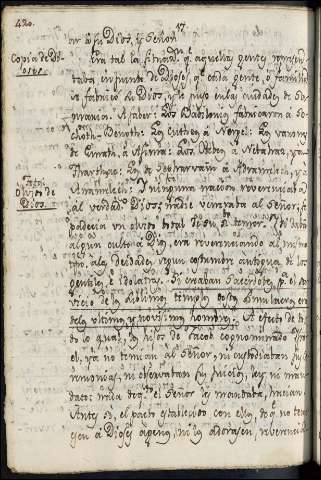 420.
Copia de Dioses.
Fatal olvido de Dios.
a Dios, y Señor
Era tal la que aquellas gentes
tada en punto de Dioses, que cada gente, ò familia
se fabricò su Dios, y le puso en las ciudades de Sa
maria. A saber: Los Babilonios fabricaron à So
choth-Benoth: Los Cutheos, à Nergel: Los varones
de Emath, à Asima: Los Heveos à Nebahaz, y à
Tharthac: Los de Sepharvaim à Adramelech, y à
Anamelech: Y ninguna nacion reverenciaba
al verdadero Dios; nadie veneraba al Señor; se
padecia un olvido total de su santo temor. Y si daban
algun culto à Dios, era reverenciando al mismo
las Deidades, segun costumbre antigua de los
gentiles, è idolatras. Se creaban Sacerdotes para el ser
vicio de los templos
de la ultima y novisima hombre. A efecto de to
do lo qual, los hijos de Jacob cognominado Isra
el, ya no temian al Señor, ni custodiaban sus
ceremonias, ni observaban sus juicios, ley, ni man
dato: nada de que el Señor le mandaba, hacian.
Antes si, el pacto establecido con ellos, de que no tem
iesen à Dioses agenos, ni los adorasen, reverencia